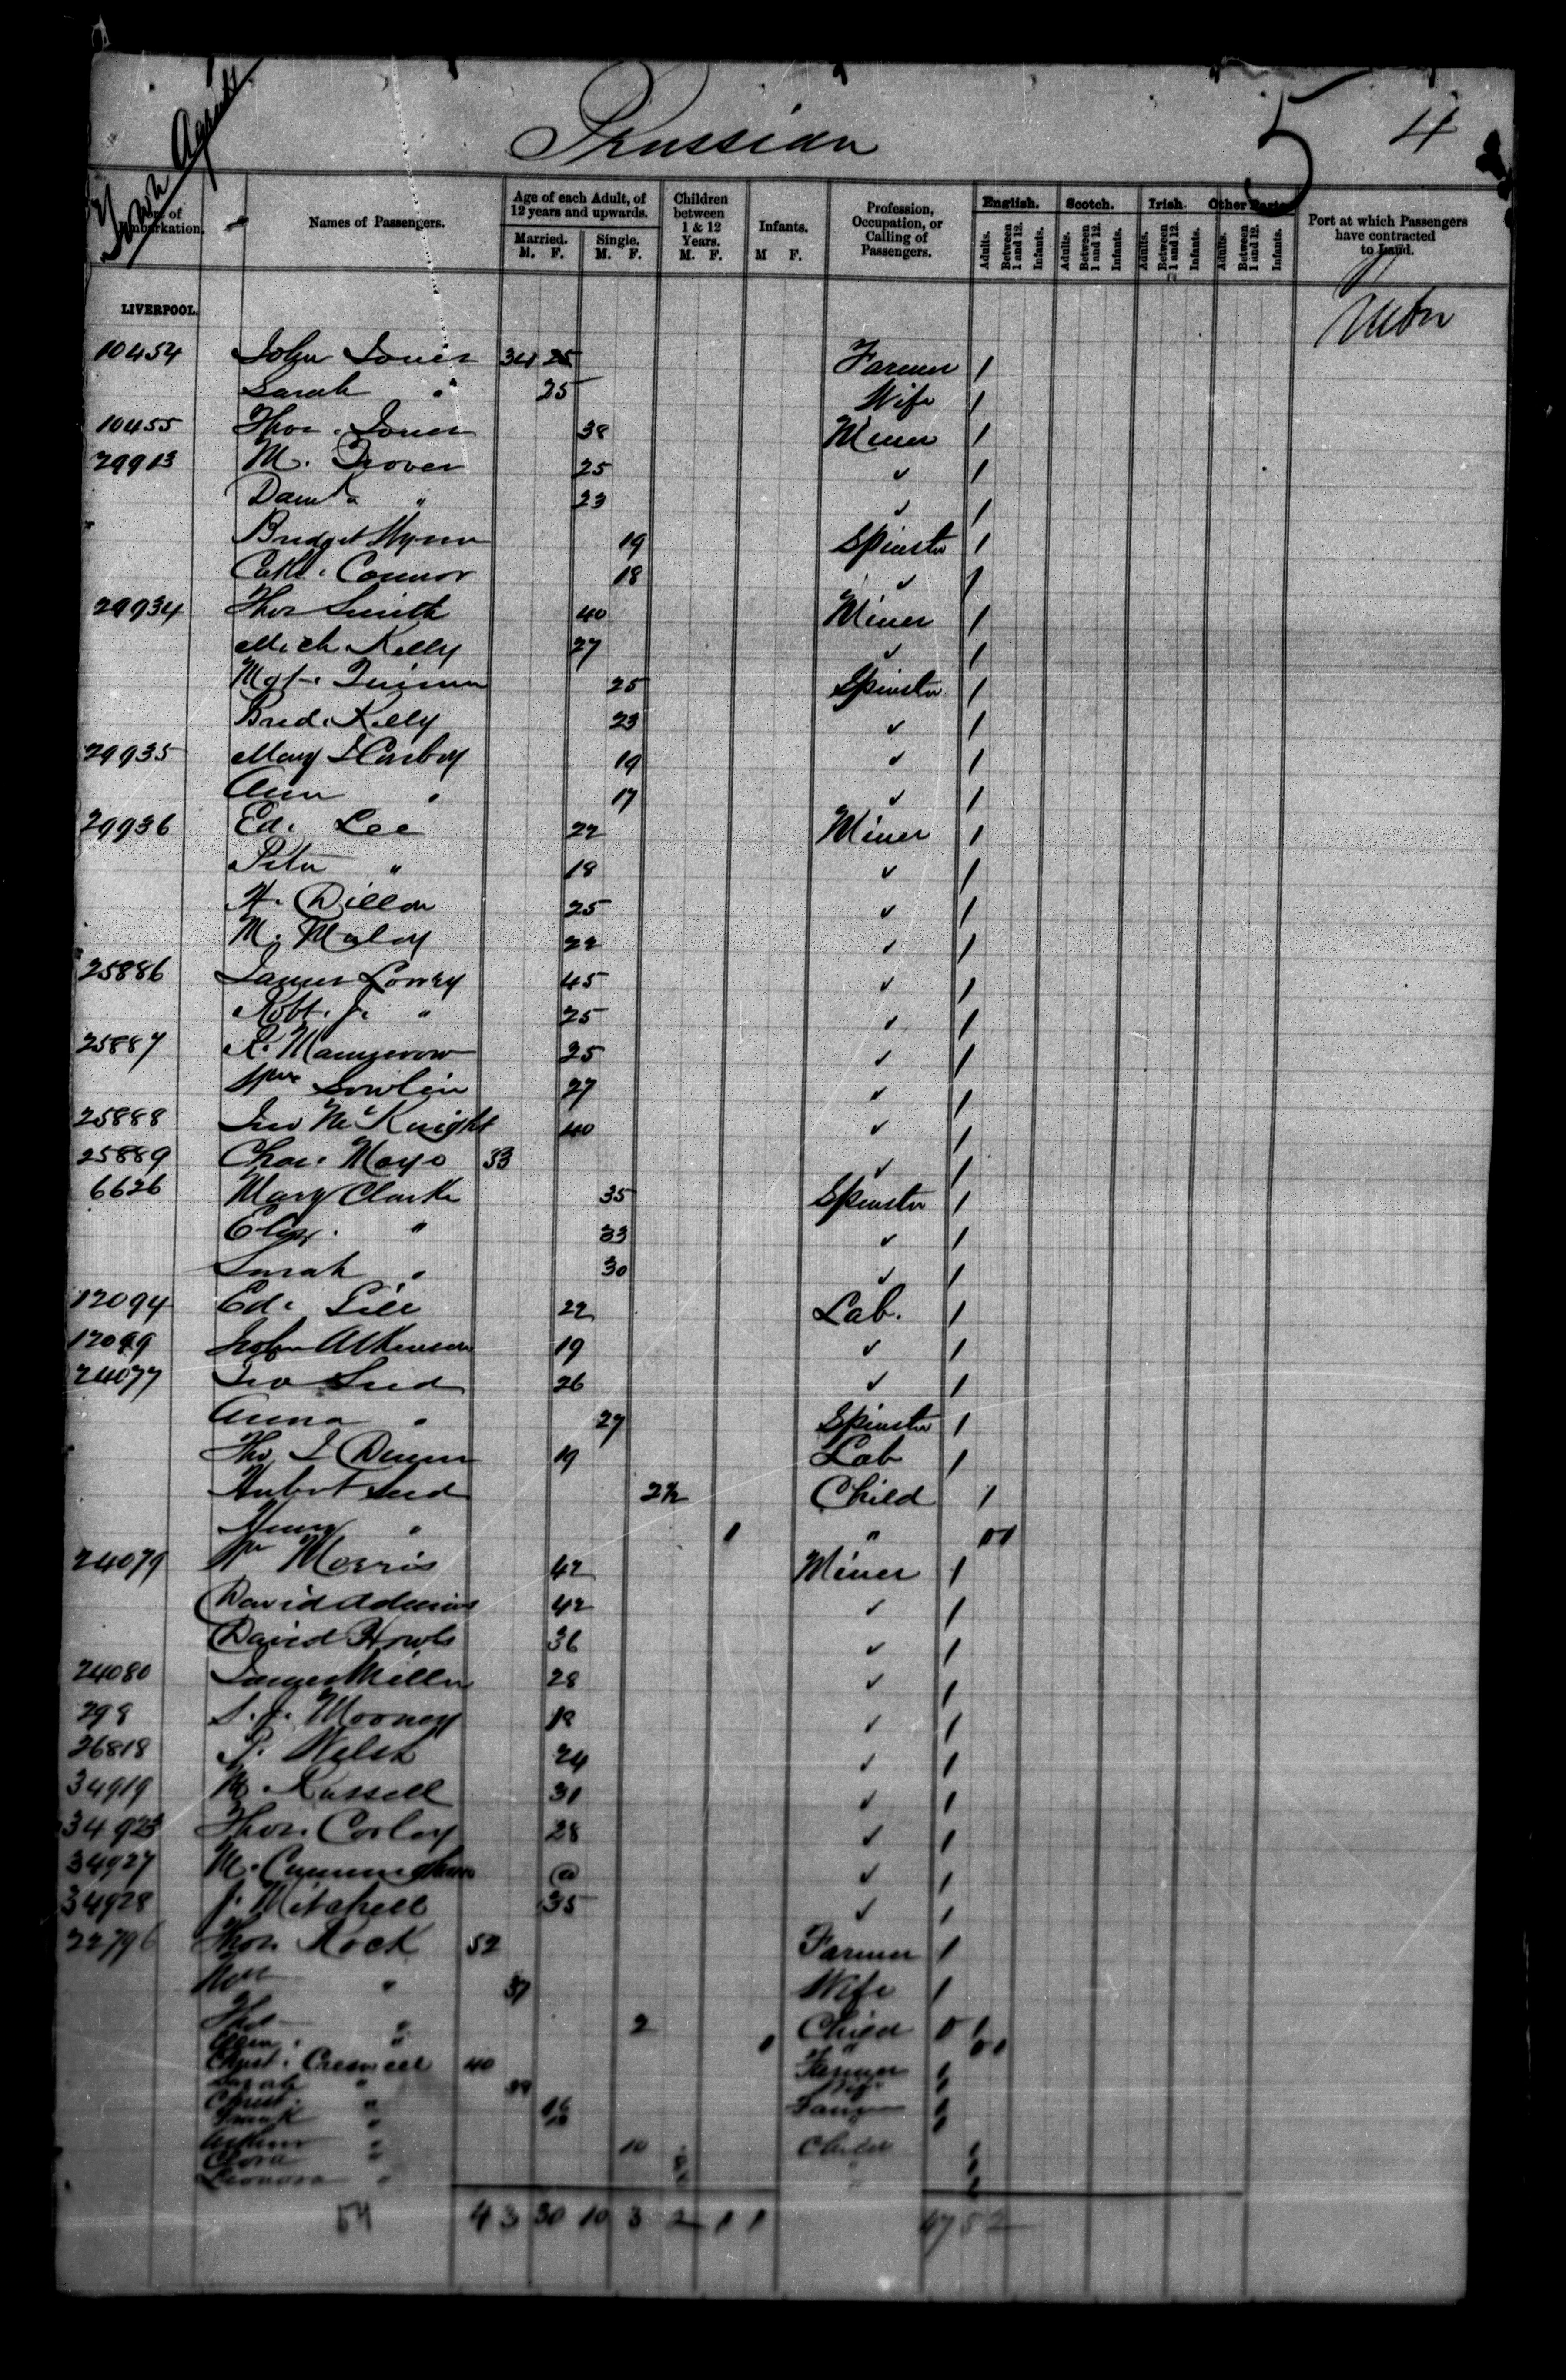 Town Agents
Prussian
5 4
Port of Embarkation. Names of Passengers. Age of each Adult, of 12 years and upwards. Children between 1 & 12 Years. Infants. Profession, Occupation, or Calling of Passengers. English. Scotch. Irish. Other Parts Port at which Passengers have contracted to Land.
Married. Single.
M. F. M. F. M. F. M F. Adults. Between 1 and 12. Infants. Adults. Between 1 and 12. Infants. Adults. Between 1 and 12. Infants. Adults. Between 1 and 12. Infants.
LIVERPOOL.
10454 John Jones 34 25 Farmer 1
Sarah " 25 Wife 1
10455 Thos. Jones 38 Miner 1
29913 M. 25 ✓ 1
" 23 ✓ 1
Bridget 19 Spinster 1
Cath. Connor 18 ✓ 1
29934 Thos Smith 40 Miner 1
Mich Kelly 27 ✓ 1
Mgt. 25 Spinster 1
Brid. Kelly 23 ✓ 1
29935 Mary 19 ✓ 1
Ann " 17 ✓ 1
29936 Ed. Lee 22 Miner 1
Peter " 18 ✓ 1
Dillon 25 ✓ 1
M. Maloy 22 ✓ 1
25886 James Lowry 45 ✓ 1
Robt. J. " 25 ✓ 1
25887 25 ✓ 1
Wm 27 ✓ 1
25888 Jno McKnight 40 ✓ 1
25889 Chas. Mayo 33 ✓ 1
6626 Mary Clarke 35 Spinster 1
Eliz. " 33 ✓ 1
Sarah " 30 ✓ 1
12094 Ed. Gill 22 Lab. 1
12099 John Atkinson 19 ✓ 1
24077 Seed 26 ✓ 1
Anna " 27 Spinster 1
Tho J Dunn 19 Lab 1
Hubert Seed 2½ Child 1
Henry " 1 " 01
24079 Wm Morris 42 Miner 1
David Adams 42 ✓ 1
David Howls 36 ✓ 1
24080 James Miller 28 ✓ 1
298 S. J. Mooney 18 ✓ 1
26818 P. Welsh 24 ✓ 1
34919 Russell 31 ✓ 1
34923 Thos. Corley 28 ✓ 1
34927 M. Cunningham @ ✓ 1
34928 J. Mitchell 35 ✓ 1
22796 Thos Rock 52 Farmer 1
" 37 Wife 1
Thos " 2 Child 0 1
" 1 " 0 1
Christ. 40 Farmer 1
Sarah " 1
Christ. " 16 1
Frank " 1
Arthur " 10 Child 1
Clara " 8 " 1
Leonora " " 1
54 4 3 30 10 3 2 1 1 47 5 2